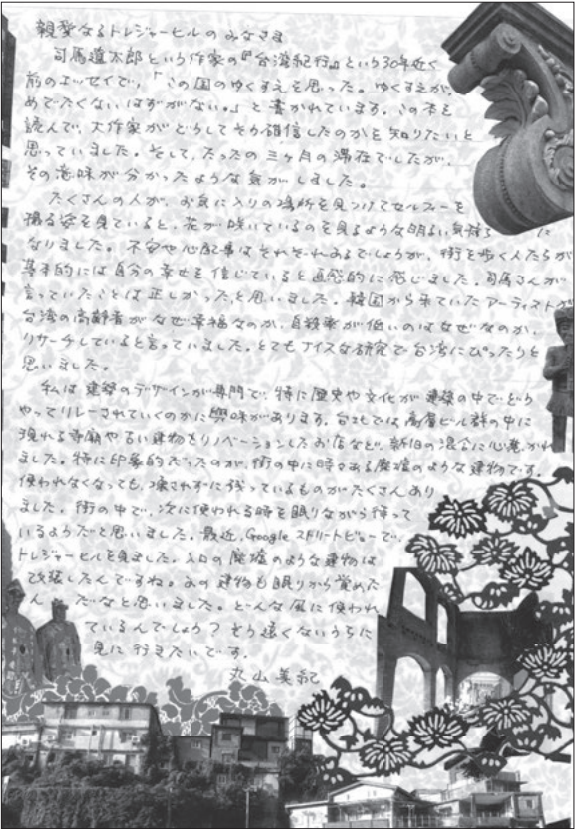 親愛なるトレジャーヒルのみなさま
司馬遼太郎という作家の『台湾紀行』という30年近く
前のエッセイで、「この国のゆくすえを思った。ゆくすえが、
めでたくないはずがない。」と書かれています。この本を
読んで、大作家がどうしてそう確信したのかを知りたいと
思っていました。そして、たったの三ヶ月の滞在でしたが、
その意味が分かったような気がしました。
たくさんの人が、お気に入りの場所を見つけてセルフィーを
撮る姿を見ていると、花が咲いているのを見るような明るい気持ち に
なりました。不安や心配事はそれぞれあるでしょうが、街を歩く人たちが
基本的には自分の幸せを信じていると直感的に感じました。司馬さんが
言っていたことは正しかったと思いました。韓国から来ていたアーティストが
台湾の高齢者がなぜ幸福なのか、自殺率が低いのはなぜなのか、
リサーチしていると言っていました。とてもナイスな研究で台湾にぴったりと
思いました。
私は建築のデザインが専門で、特に歴史や文化が建築の中でどう
やってリレーされていくのかに興味があります。台北では高層ビル群の中に
現れる寺廟や古い建物をリノベーションしたお店など、新旧の混合に心惹かれ
ました。特に印象的だったのが、街の中に時々ある廃墟のような建物です。
使われなくなっても、壊されずに残っているものがたくさんあり
ました。街の中で、次に使われる時を眠りながら待って
いるようだと思いました。最近、Googleストリートビューで、
トレジャーヒルを見ました。入口の廃墟のような建物は
改装したんですね。あの建物も眠りから覚めた
ん だなと思いました。どんな風に使われ
ているんでしょう？そう遠くないうちに
見に行きたいです。
丸山美紀